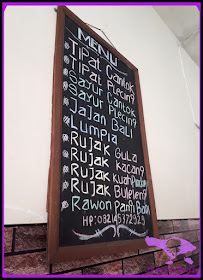 MENU
TIPAT CANTOK
TIPAT PLECING
SAYUR CANTOK
SAYUR PLECING
JAJAN BALI
LUMPIA
RUJAK GULA
RUJAK KACANG
RUJAK KUAH PINDANG
RUJAK BULELENG
RAWON
HP: